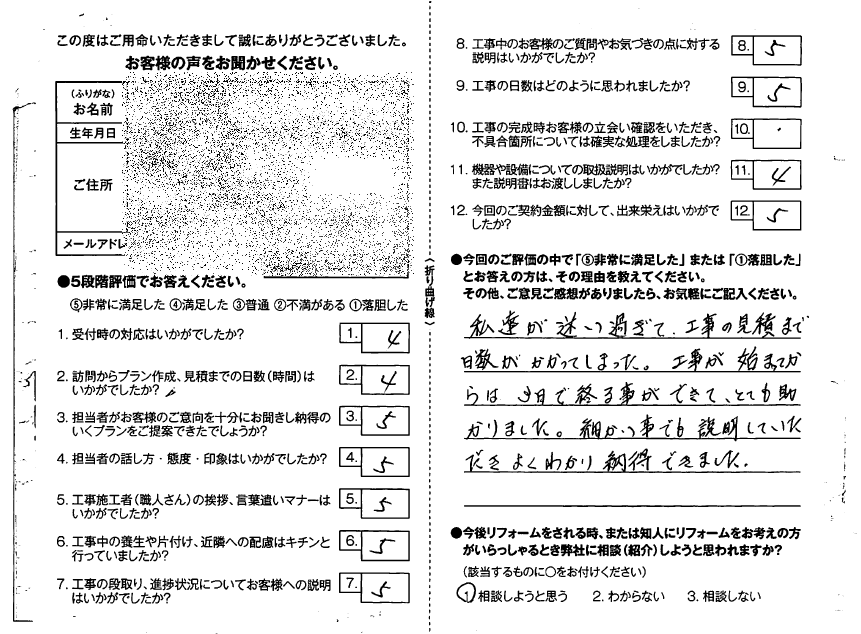 この度はご用命いただきまして誠にありがとうございました。
お客様の声をお聞かせください。
(ふりがな)
お名前
生年月日
ご住所
メールアドレ
●5段階評価でお答えください。
⑤非常に満足した ④満足した ③普通 ②不満がある ①落胆した
1. 受付時の対応はいかがでしたか?
1. 4
2. 訪問からプラン作成、見積までの日数(時間)は
いかがでしたか?
2. 4
3. 担当者がお客様のご意向を十分にお聞きし納得の
いくプランをご提案できたでしょうか?
3. 5
4. 担当者の話し方・態度・印象はいかがでしたか?
4. 5
5. 工事施工者(職人さん)の挨拶、言葉遣いマナーは
いかがでしたか?
5. 5
6. 工事中の養生や片付け、近隣への配慮はキチンと
行っていましたか?
6. 5
7. 工事の段取り、進捗状況についてお客様への説明
はいかがでしたか?
7. 5
〈折り曲げ線〉
8. 工事中のお客様のご質問やお気づきの点に対する
説明はいかがでしたか?
8. 5
9. 工事の日数はどのように思われましたか?
9. 5
10. 工事の完成時お客様の立会い確認をいただき、
不具合箇所については確実な処理をしましたか?
10.
11. 機器や設備についての取扱説明はいかがでしたか?
また説明書はお渡ししましたか?
11. 4
12. 今回のご契約金額に対して、出来栄えはいかがで
したか?
12. 5
●今回のご評価の中で「⑤非常に満足した」または「①落胆した」
とお答えの方は、その理由を教えてください。
その他、ご意見ご感想がありましたら、お気軽にご記入ください。
私達が迷い過ぎて、工事の見積まで
日数がかかってしまった。工事が始まってか
らは 日で終る事ができて、とても助
かりました。細かい事でも説明していた
だきよくわかり納得できました。
●今後リフォームをされる時、または知人にリフォームをお考えの方
がいらっしゃるとき弊社に相談(紹介)しようと思われますか?
(該当するものに○をお付けください)
1. 相談しようと思う 2. わからない 3. 相談しない